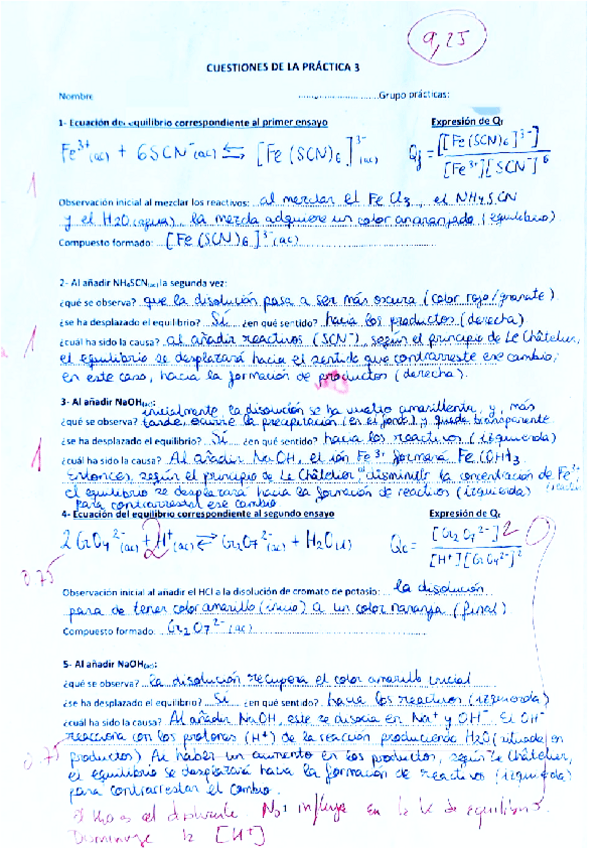 9,25
CUESTIONES DE LA PRÁCTICA 3
Nombre Grupo prácticas:
1- Ecuación del equilibrio correspondiente al primer ensayo Expresión de Q
Fe³⁺(ac) + 6SCN⁻(ac) ⇆ [Fe(SCN)₆]³⁻(ac) Q = [[Fe(SCN)₆]³⁻] / [Fe³⁺][SCN⁻]⁶
1
Observación inicial al mezclar los reactivos: al mezclar el FeCl₃, el NH₄SCN
y el H₂O (agua), la mezcla adquiere un color anaranjado (equilibrio)
Compuesto formado: [Fe(SCN)₆]³⁻(ac)
2- Al añadir NH₄SCN(ac) la segunda vez:
¿qué se observa? que la disolución pasa a ser más oscura (color rojo/granate)
¿se ha desplazado el equilibrio? Sí ¿en qué sentido? hacia los productos (derecha)
1
¿cuál ha sido la causa? al añadir reactivos (SCN⁻), según el principio de Le Châtelier,
el equilibrio se desplazará hacia el sentido que contrarreste ese cambio;
en este caso, hacia la formación de productos (derecha).
3- Al añadir NaOH(ac):
inicialmente la disolución se ha vuelto amarillenta, y, más
¿qué se observa? tarde, ocurre la precipitación (en el fondo) y queda transparente
¿se ha desplazado el equilibrio? Sí ¿en qué sentido? hacia los reactivos (izquierda)
1
¿cuál ha sido la causa? Al añadir NaOH, el ión Fe³⁺ formará Fe(OH)₃
entonces, según el principio de Le Châtelier, disminuir la concentración de Fe³⁺
el equilibrio se desplazará hacia la formación de reactivos (izquierda)
para contrarrestar ese cambio
4- Ecuación del equilibrio correspondiente al segundo ensayo Expresión de Q
2CrO₄²⁻(ac) + 2H⁺(ac) ⇄ Cr₂O₇²⁻(ac) + H₂O(l) Qc = [Cr₂O₇²⁻] / [H⁺][CrO₄²⁻]² 2
0.75
Observación inicial al añadir el HCl a la disolución de cromato de potasio: la disolución
pasa de tener color amarillo (inicio) a un color naranja (final)
Compuesto formado: Cr₂O₇²⁻(ac)
5- Al añadir NaOH(ac):
¿qué se observa? La disolución recupera el color amarillo inicial
¿se ha desplazado el equilibrio? Sí ¿en qué sentido? hacia los reactivos (izquierda)
¿cuál ha sido la causa? Al añadir NaOH, este se disocia en Na⁺ y OH⁻. El OH⁻
reacciona con los protones (H⁺) de la reacción produciendo H₂O (situado en
0.75
productos) Al haber un aumento en los productos, según Le Châtelier,
el equilibrio se desplazará hacia la formación de reactivos (izquierda)
para contrarrestar el cambio.
H₂O es el disolvente. No influye en la K de equilibrio.
Disminuye la [H⁺]